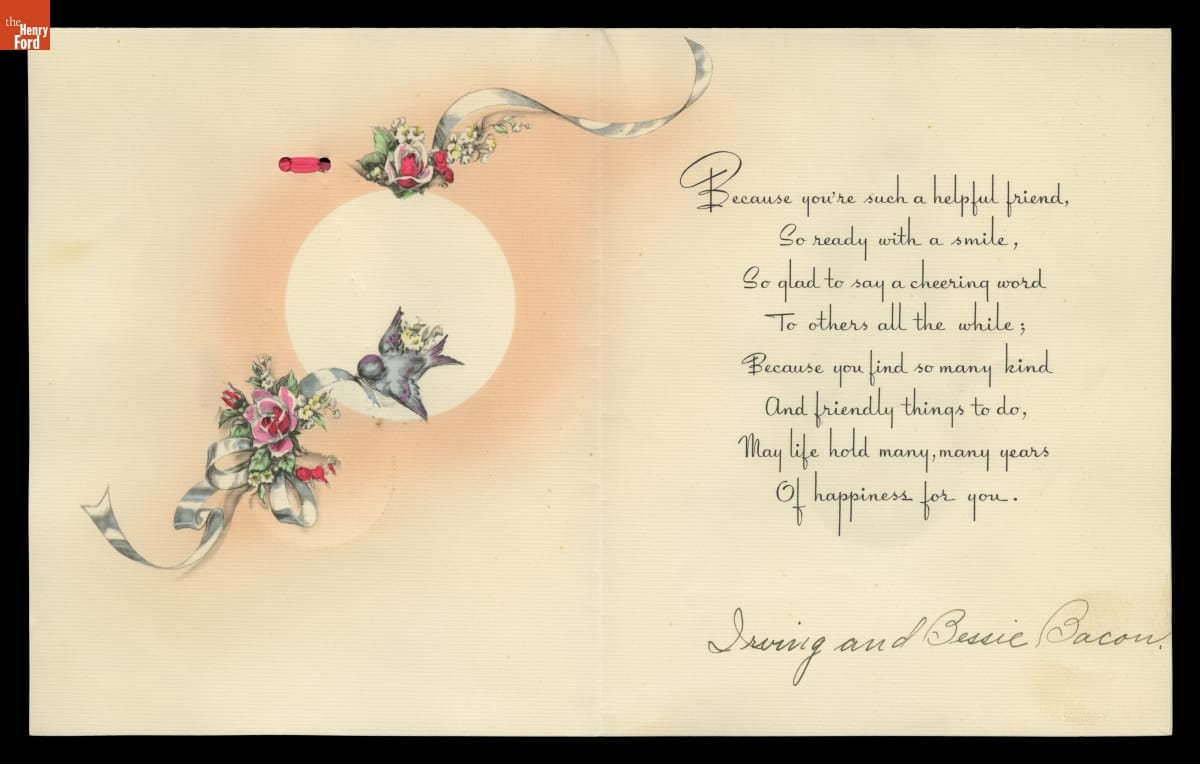 the
Henry
Ford
Because you're such a helpful friend,
So ready with a smile,
So glad to say a cheering word
To others all the while;
Because you find so many kind
And friendly things to do,
May life hold many, many years
Of happiness for you.
Irving and Bessie Bacon.